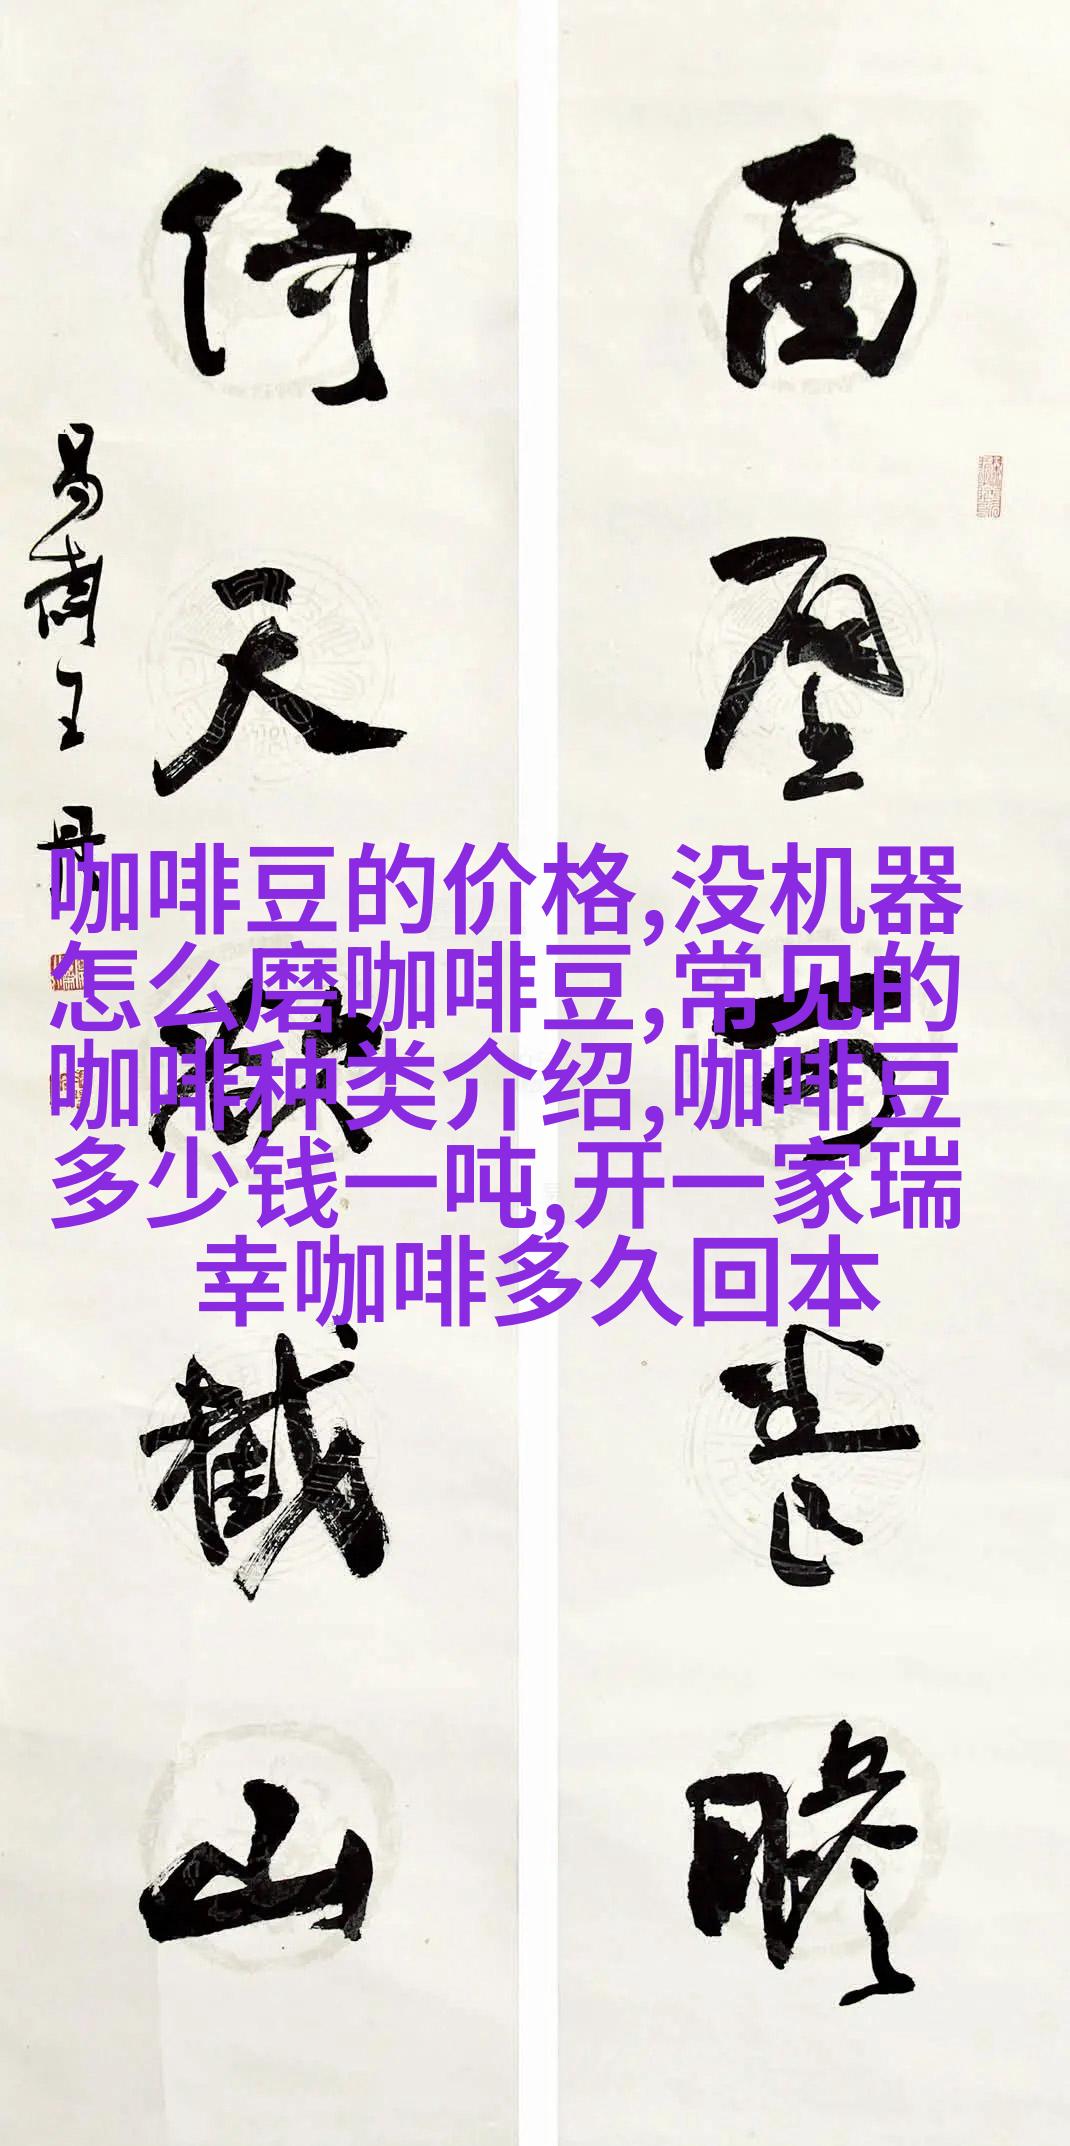 面壁可
倚天欲截山
咖啡豆的价格,没机器
怎么磨咖啡豆,常见的
咖啡种类介绍,咖啡豆
多少钱一吨,开一家瑞
幸咖啡多久回本